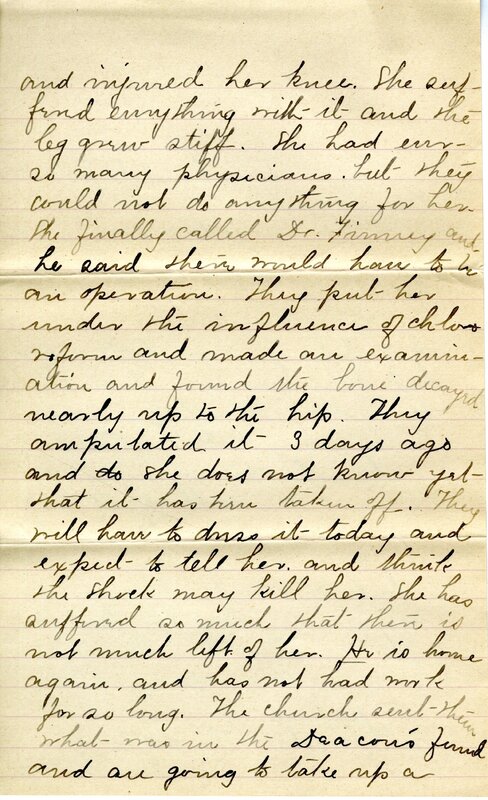 and injured her knee. She suf-
fered everything with it and the
leg grew stiff. She had ever-
so many physicians. but they
could not do anything for her.
She finally called Dr. Finney and
he said there would have to be
an operation. They put her
under the influence of chlo-
roform and made an examin-
ation and found the bone decayed
nearly up to the hip. They
amputated it 3 days ago
and do she does not know yet
that it has been taken off. They
will have to dress it today and
expect to tell her. and think
the shock may kill her. She has
suffered so much that there is
not much left of her. He is home
again. and has not had work
for so long. The church sent them
what was in the Deacon's fund
and are going to take up a